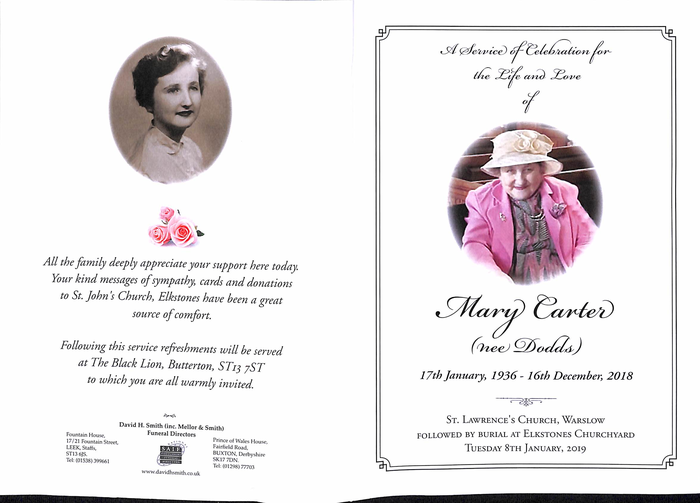 All the family deeply appreciate your support here today.
Your kind messages of sympathy, cards and donations
to St. John's Church, Elkstones have been a great
source of comfort.
Following this service refreshments will be served
at The Black Lion, Butterton, ST13 7ST
to which you are all warmly invited.
David H. Smith (inc. Mellor & Smith)
Funeral Directors
Fountain House,
17/21 Fountain Street,
LEEK, Staffs,
ST13 6JS.
Tel: (01538) 399661
SAIF
Prince of Wales House,
Fairfield Road,
BUXTON, Derbyshire
SK17 7DN.
Tel: (01298) 77703
www.davidhsmith.co.uk
A Service of Celebration for
the Life and Love
of
Mary Carter
(nee Dodds)
17th January, 1936 - 16th December, 2018
St. Lawrence's Church, Warslow
followed by burial at Elkstones Churchyard
Tuesday 8th January, 2019